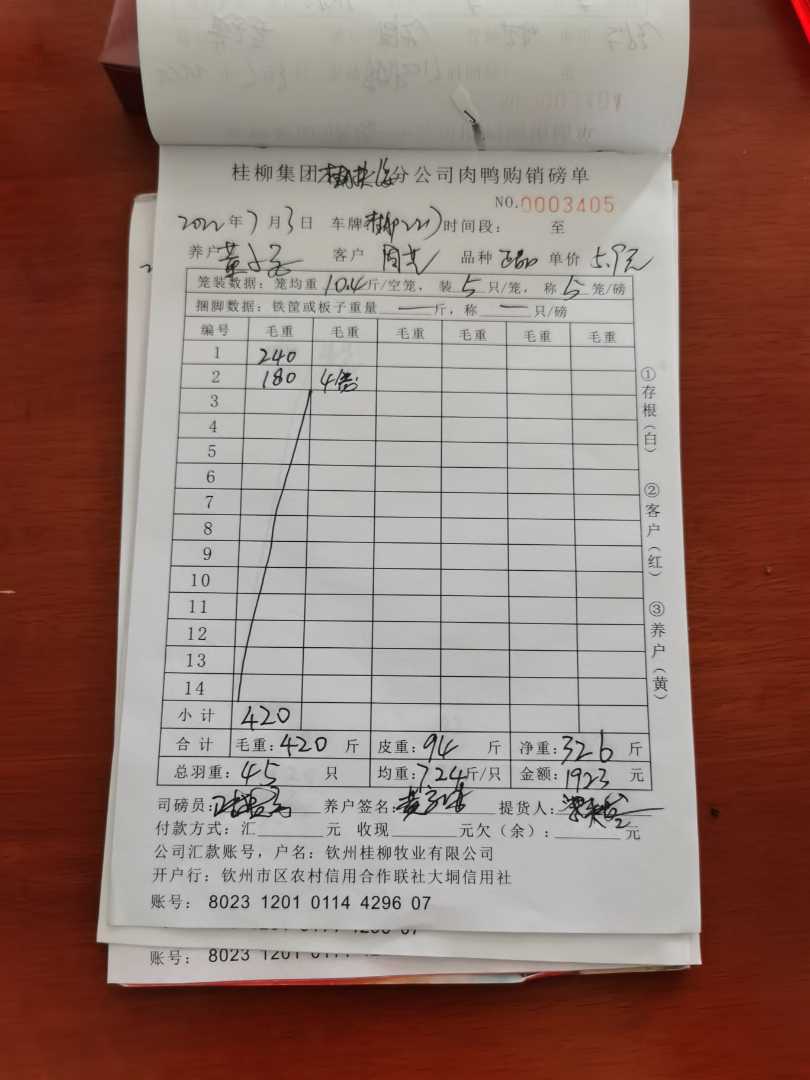 桂柳集团分公司肉鸭购销磅单
NO.0003405
2022年7月3日 车牌 时间段： 至
养户 客户 品种 正品 单价 5.9元
笼装数据：笼均重10.4斤/空笼，装5只/笼，称5笼/磅
捆脚数据：铁筐或板子重量—斤，称—只/磅
编号 毛重 毛重 毛重 毛重 毛重 毛重
1 240
2 180 4笼
3
4
5
6
7
8
9
10
11
12
13
14
小计 420
合计 毛重：420 斤 皮重：94 斤 净重：326 斤
总羽重：45 只 均重：7.24斤/只 金额：1923 元
司磅员： 养户签名： 提货人：
付款方式：汇 元 收现 元欠（余）： 元
公司汇款账号，户名：钦州桂柳牧业有限公司
开户行：钦州市区农村信用合作联社大垌信用社
账号：8023 1201 0114 4296 07
①存根（白）
②客户（红）
③养户（黄）
账号：8023 1201